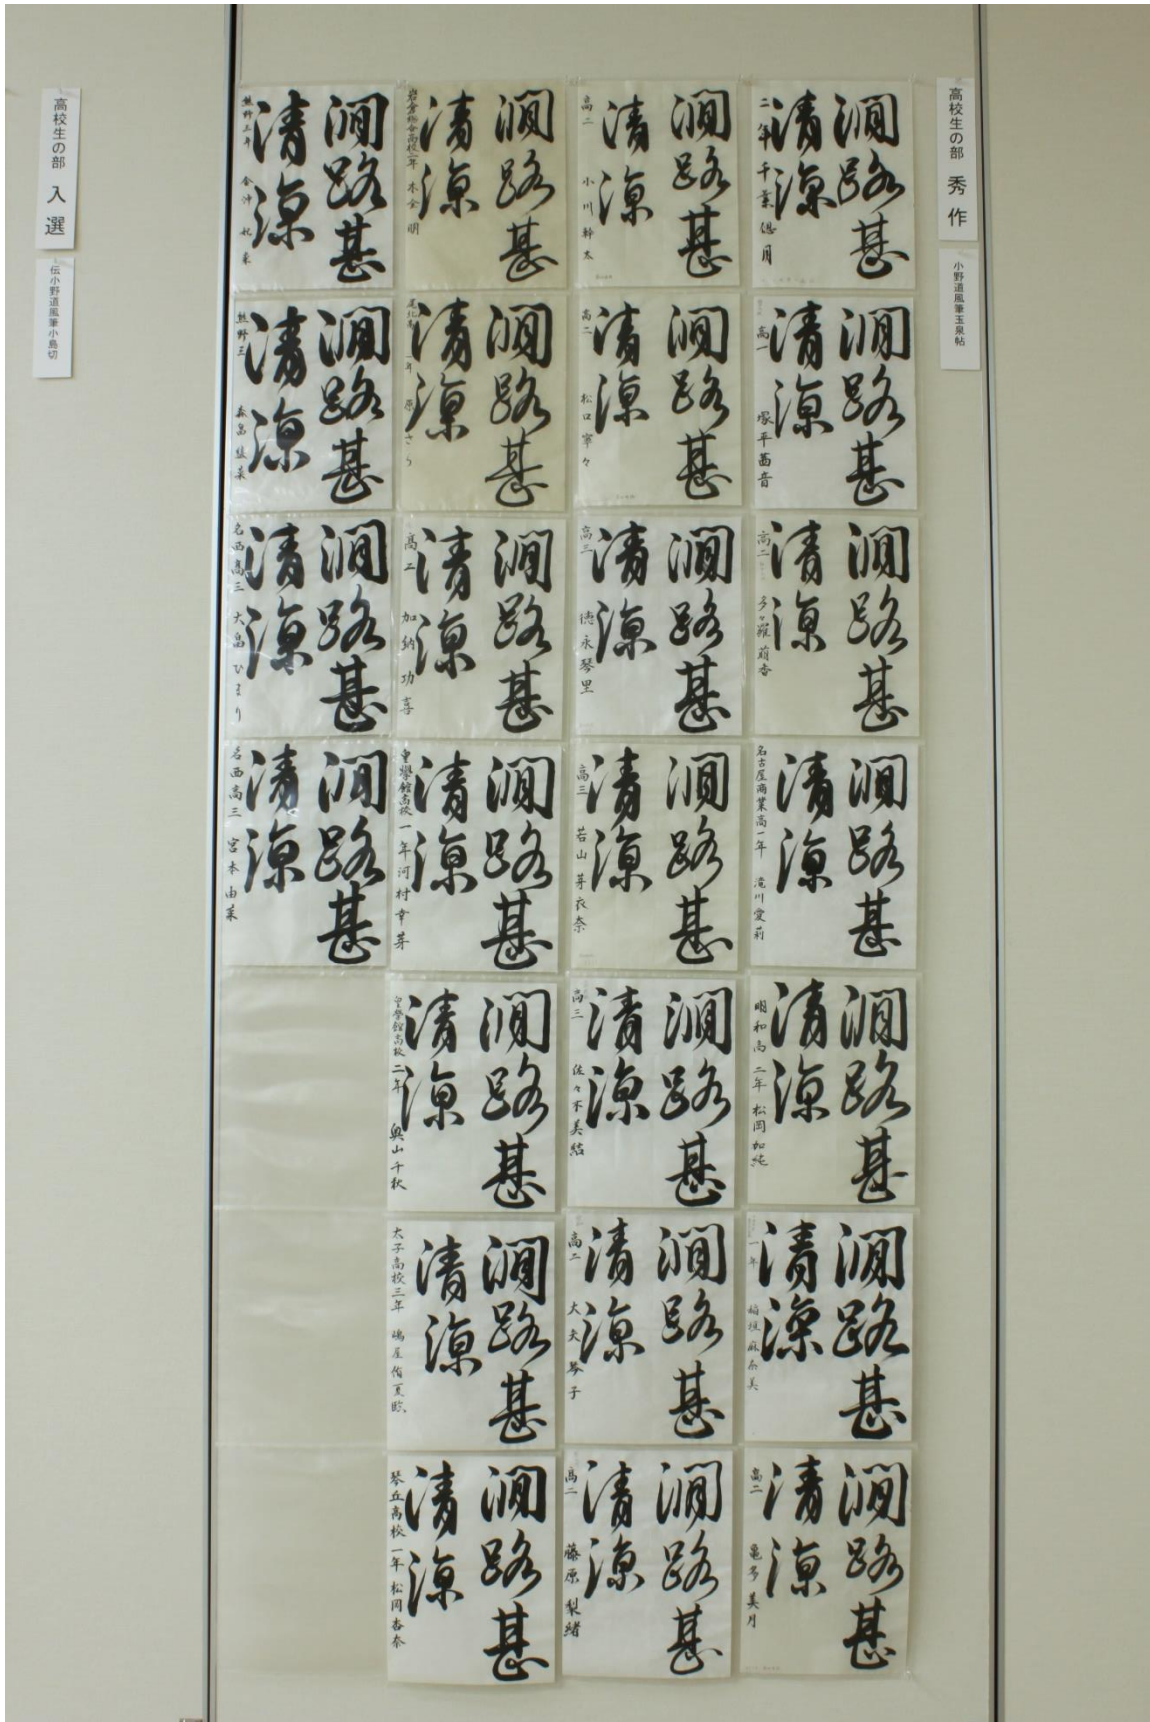 高校生の部 秀作
小野道風筆玉泉帖
澗路甚
清涼
二年 千葉
澗路甚
清涼
高一 塚平茜音
澗路甚
清涼
高二 多々羅萌香
澗路甚
清涼
名古屋商業高一年 滝川愛莉
澗路甚
清涼
明和高 二年 松岡加純
澗路甚
清涼
一年 稲垣麻奈美
澗路甚
清涼
高二 亀多美月
澗路甚
清涼
高二 小川幹太
澗路甚
清涼
高二 松口寧々
澗路甚
清涼
高三 徳永琴里
澗路甚
清涼
高三 若山芽衣奈
澗路甚
清涼
高三 佐々木美結
澗路甚
清涼
高二 大夫琴子
澗路甚
清涼
高二 藤原梨緒
澗路甚
清涼
岩倉総合高校二年
澗路甚
清涼
原さら
澗路甚
清涼
高二 加納功喜
澗路甚
清涼
皇學館高校 一年 河村幸芽
澗路甚
清涼
皇學館高校 二年 奥山千秋
澗路甚
清涼
太子高校三年 嶋屋侑夏臨
澗路甚
清涼
琴丘高校 一年 松岡杏奈
澗路甚
清涼
熊野三年
澗路甚
清涼
熊野三
澗路甚
清涼
名西高三 大畠ひまり
澗路甚
清涼
名西高三 宮本由菜
高校生の部 入選
伝小野道風筆小島切